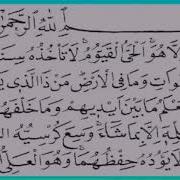 ـمِ ٱللَّهِ ٱلرَّحْمَٰنِ
لَّا هُوَ ٱلْحَىُّ ٱلْقَيُّومُ لَا تَأْخُذُهُۥ سِنَةٌ
وَٰتِ وَمَا فِى ٱلْأَرْضِ مَن ذَا ٱلَّذِى يَشـ
عْلَمُ مَا بَيْنَ أَيْدِيهِمْ وَمَا خَلْفَهُمْ
لْمِهِۦٓ إِلَّا بِمَا شَآءَ وَسِعَ كُرْسِيُّهُ ٱ
لَا يَـُٔودُهُۥ حِفْظُهُمَا وَهُوَ ٱلْعَلِىُّ